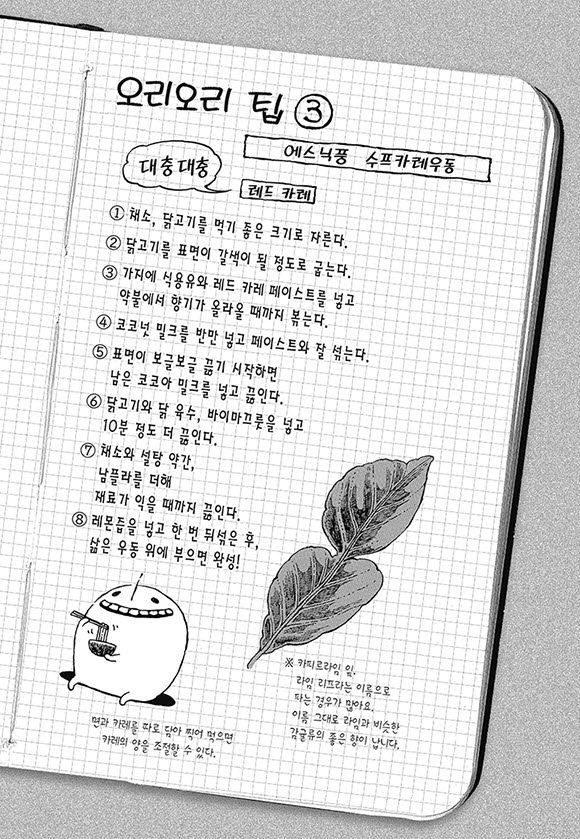 오리오리 팁 ③
에스닉풍 수프카레우동
대충대충
레드 카레
① 채소, 닭고기를 먹기 좋은 크기로 자른다.
② 닭고기를 표면이 갈색이 될 정도로 굽는다.
③ 가지에 식용유와 레드 카레 페이스트를 넣고
약불에서 향기가 올라올 때까지 볶는다.
④ 코코넛 밀크를 반만 넣고 페이스트와 잘 섞는다.
⑤ 표면이 보글보글 끓기 시작하면
남은 코코아 밀크를 넣고 끓인다.
⑥ 닭고기와 닭 육수, 바이마끄룻을 넣고
10분 정도 더 끓인다.
⑦ 채소와 설탕 약간,
남플라를 더해
재료가 익을 때까지 끓인다.
⑧ 레몬즙을 넣고 한 번 뒤섞은 후,
삶은 우동 위에 부으면 완성!
※ 카피르라임 잎.
라임 리프라는 이름으로
파는 경우가 많아요.
이름 그대로 라임과 비슷한
감귤류의 좋은 향이 납니다.
면과 카레를 따로 담아 찍어 먹으면
카레의 양을 조절할 수 있다.